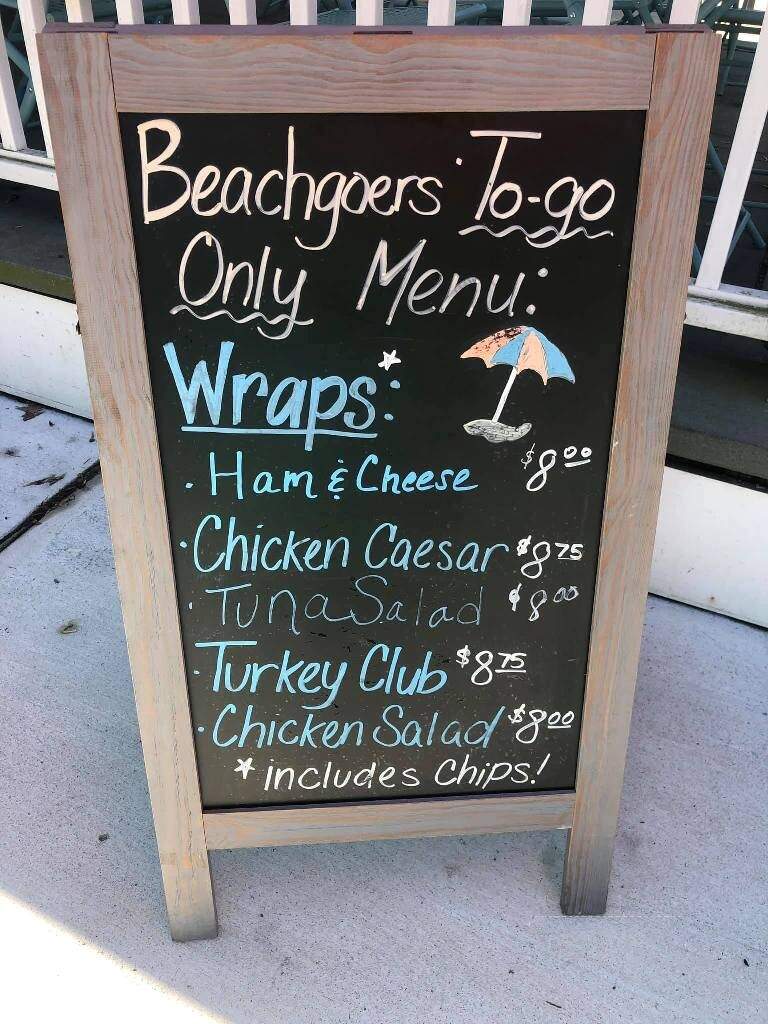 Beachgoers' To-go
Only Menu:
Wraps*:
· Ham & Cheese $8.00
· Chicken Caesar $8.75
· Tuna Salad $8.00
· Turkey Club $8.75
· Chicken Salad $8.00
* includes Chips!